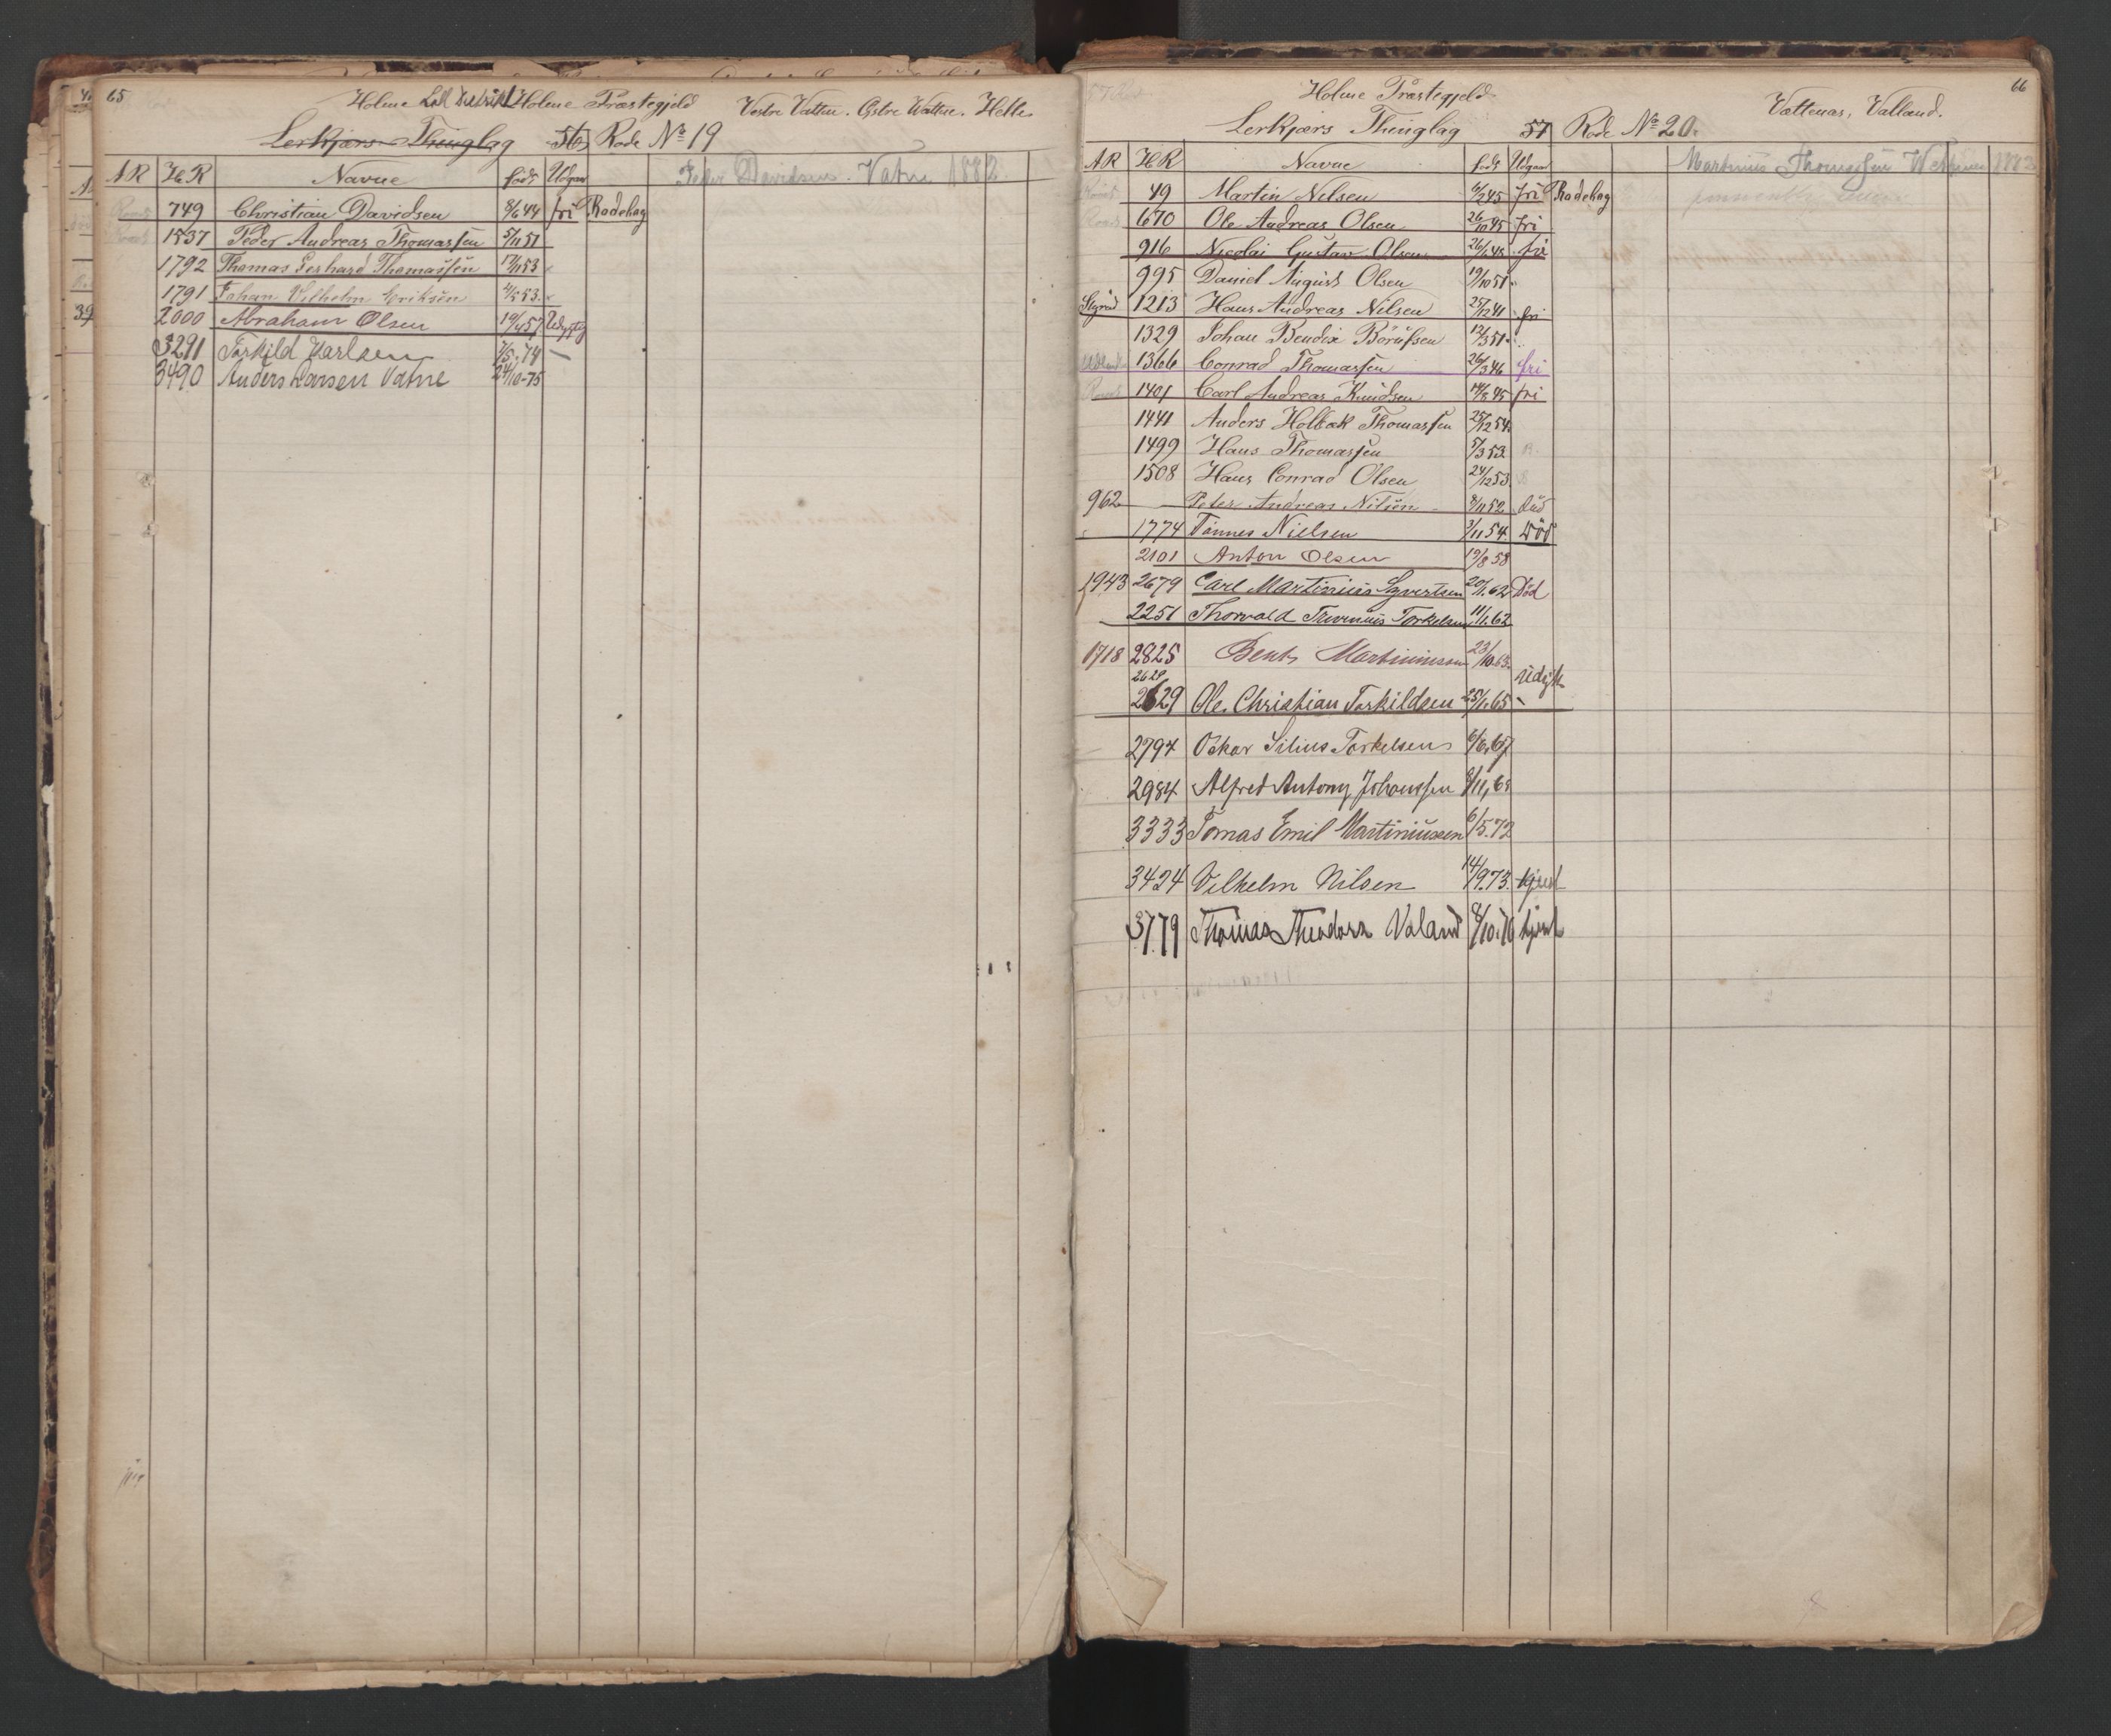 65
Holme Holme Præstegjeld Vestre Vatne. Østre Vatne. Helle
Lerkjærs Thinglag 56 Rode No 19
AR HR Navne født Udgaar Peder Davidsen. Vatne 1882
749 Christian Davidsen 8/6 44 fri Rodelag
1537 Peder Andreas Thomassen 5/11 51
1792 Thomas Gerhard Thomassen 17/11 53
1791 Johan Vilhelm Eriksen 4/5 53
2000 Abraham Olsen 19/4 57 Udygtig
3291 Torkild Karlsen 7/5.74 —
3490 Anders Larsen Vatne 24/10-75
66
Holme Præstegjeld
Vattenæs, Valland.
Lerkjærs Thinglag 57 Rode No 20.
AR HR Navne født Udgaar Martinius Thomassen 1882
49 Martin Nilsen 6/2 45 fri Rodelag
670 Ole Andreas Olsen 26/10 45 fri
916 Nicolai Gustav Olsen 26/1 48 fri
995 Daniel August Olsen 19/10 51
1213 Hans Andreas Nilsen 25/12 41 fri
1329 Johan Bendix Börufsen 12/3 51
1366 Conrad Thomassen 26/3 46 fri
1401 Carl Andreas Knudsen 14/8 45 fri
1441 Anders Holbæk Thomassen 25/12 54
1499 Hans Thomassen 5/3 53
1508 Hans Conrad Olsen 24/12 53
962 Peter Andreas Nilsen 8/11 52 død
1774 Tönnes Nielsen 3/11 54 Död
2101 Anton Olsen 19/8 58
1943 2679 Carl Martinius Syvertsen 20/1.62 Död
2251 Thorvald Torkelsen 11/1.62
1718 2825 Bent Martiniussen 23/10.63
2629 Udygt
2629 Ole Christian Torkildsen 25/1.65 -
2794 Oskar Silius Torkelsen 6/6.67
2984 Alfred Antony Johanssen 8/11,68
3333 Tomas Emil Martiniussen 6/5.72
3424 Vilhelm Nilsen 14/9.73. tjent
3779 Thomas Theodor Valand 8/10.76 tjent